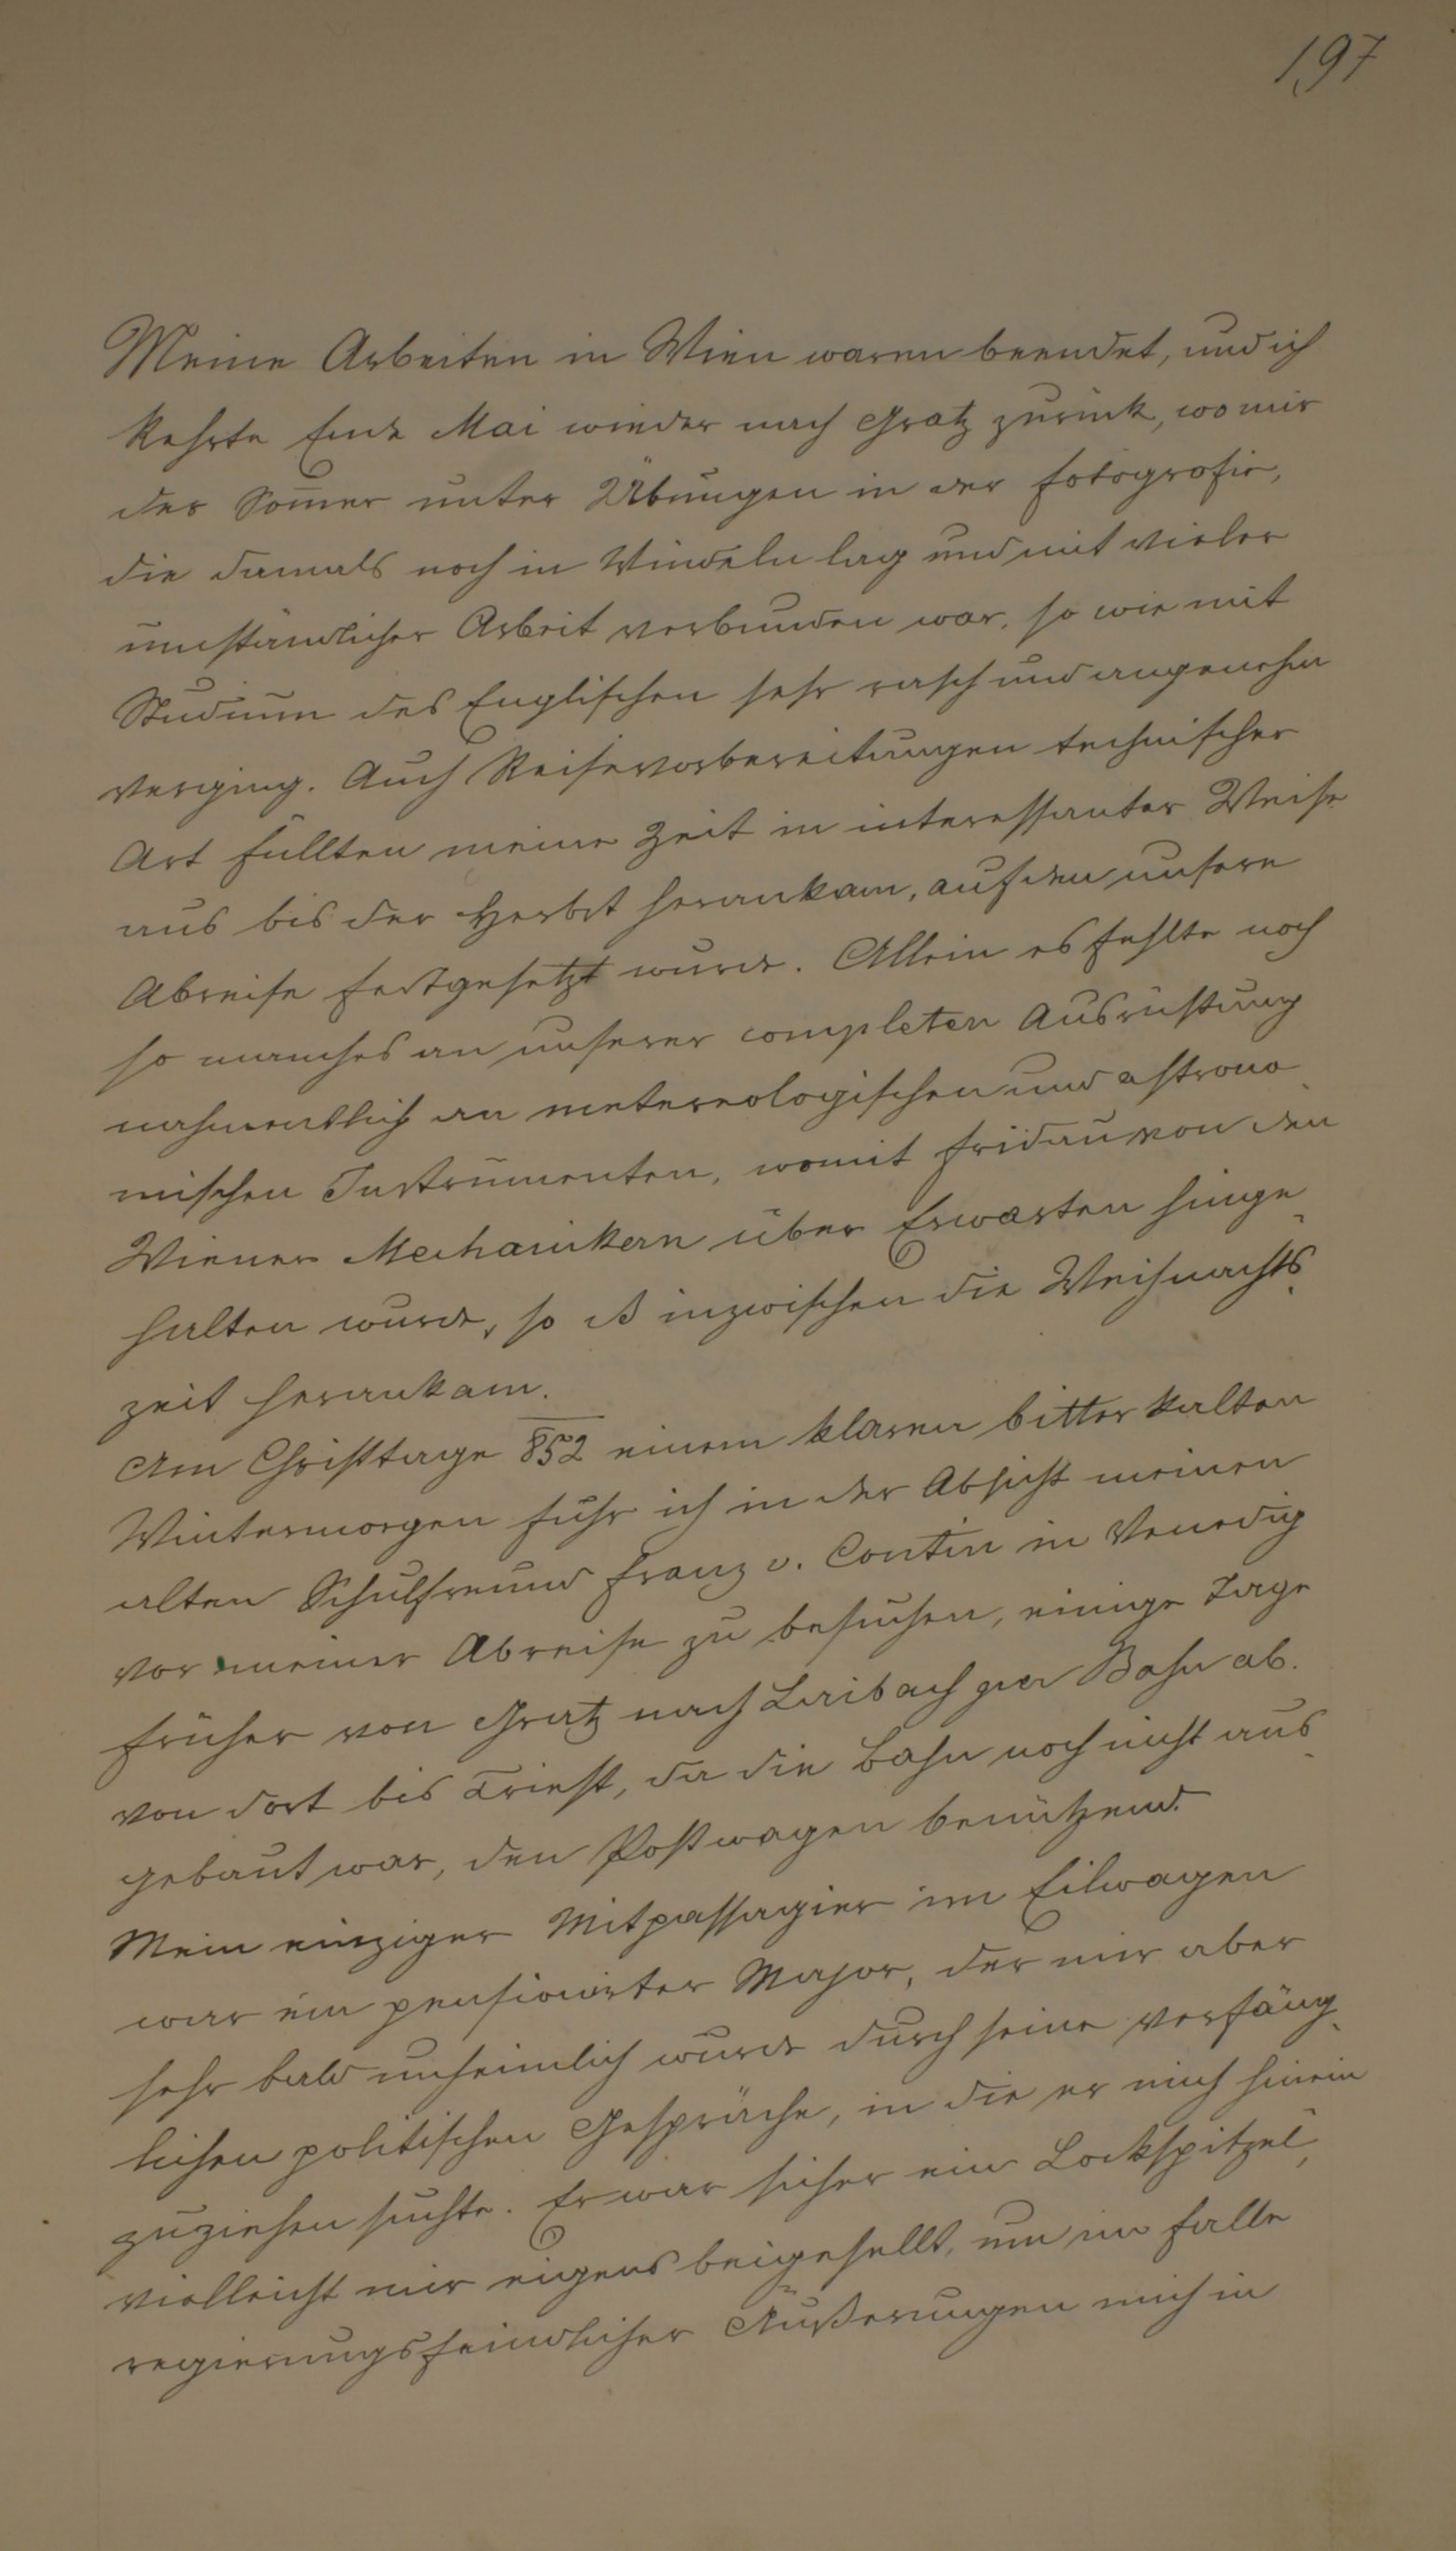 197
Meine Arbeiten in Wien waren beendet, und ich
kehrte Ende Mai wieder nach Gratz zurück, wo mir
der Som̅er unter Übungen in der Fotografie,
die damals noch in Windeln lag und mit vieler
umständlicher Arbeit verbunden war, so wie mit
Studium des Englischen sehr rasch und angenehm
verging. Auch Reisevorbereitungen technischer
Art füllten meine Zeit in interessanter Weise
aus bis der Herbst herankam, auf den unsere
Abreise festgesetzt wurde. Allein es fehlte noch
so manches an unserer completen Ausrüstung
nahmentlich an metereologischen und astrono
mischen Instrumenten, womit Fridau von den
Wiener Mechanikern über Erwarten hinge
halten wurde, so ds inzwischen die Weihnachts
zeit herankam.
Am Christtage 852 einem klaren bitter kalten
Wintermorgen fuhr ich in der Absicht meinen
alten Schulfreund Franz v. Contin in Venedig
vor meiner Abreise zu besuchen, einige Tage
früher von Gratz nach Laibach per Bahn ab.
von dort bis Triest, da die Bahn noch nicht aus
gebaut war, den Postwagen benützend.
Mein einziger Mitpassagier im Eilwagen
war ein pensionirter Major, der mir aber
sehr bald unheimlich wurde durch seine verfäng
lichen politischen Gespräche, in die er mich hinein
zuziehen suchte. Er war sicher ein Lockspitzel,
vielleicht mir eigens beigesellt, um im Falle
regierungsfeindlicher Äußerungen mich in